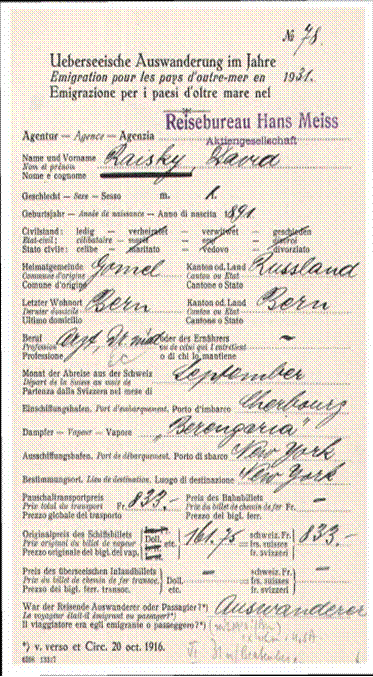 № 78.
Ueberseeische Auswanderung im Jahre
Emigration pour les pays d'outre-mer en 1931.
Emigrazione per i paesi d'oltre mare nel
Reisebureau Hans Meiss
Aktiengesellschaft
Agentur — Agence — Agenzia
Name und Vorname
Nom et prénom Raisky, David
Nome e cognome
Geschlecht — Sexe — Sesso m. f.
Geburtsjahr — Année de naissance — Anno di nascita 1891
Zivilstand: ledig — verheiratet — verwitwet — geschieden
Etat-civil: célibataire — marié — veuf — divorcé
Stato civile: celibe — maritato — vedovo — divorziato
Heimatgemeinde Gomel Kanton od. Land Russland
Commune d'origine Canton ou Etat
Comune d'origine Cantone o Stato
Letzter Wohnort Bern Kanton od. Land Bern
Dernier domicile Canton ou Etat
Ultimo domicilio Cantone o Stato
Beruf Arzt, Dr. med. oder des Ernährers —
Profession ou de celui qui l'entretient
Professione o di chi lo mantiene
Monat der Abreise aus der Schweiz
Départ de la Suisse au mois de September
Partenza dalla Svizzera nel mese di
Einschiffungshafen. Port d'embarquement. Porto d'imbarco Cherbourg
Dampfer — Vapeur — Vapore „Berengaria"
Ausschiffungshafen. Port de débarquement. Porto di sbarco New York
Bestimmungsort. Lieu de destination. Luogo di destinazione New York
Pauschaltransportpreis Preis des Bahnbillets
Prix total du transport Fr. 833.- Prix du billet de chemin de fer Fr. —
Prezzo globale del trasporto Prezzo del bigl. ferr.
Originalpreis des Schiffsbillets schweiz. Fr.
Prix original du billet de vapeur Doll. etc. 161.75 = frs. suisses 833.-
Prezzo originale del bigl. del vap. fr. svizzeri
Preis des überseeischen Inlandbillets schweiz. Fr.
Prix du billet de chemin de fer transoc. Doll. etc. — = frs. suisses —
Prezzo del bigl. ferr. transoc. fr. svizzeri
War der Reisende Auswanderer oder Passagier?*) Auswanderer
Le voyageur était-il émigrant ou passager?*)
Il viaggiatore era egli emigrante o passeggero?*)
*) v. verso et Circ. 20 oct. 1916.